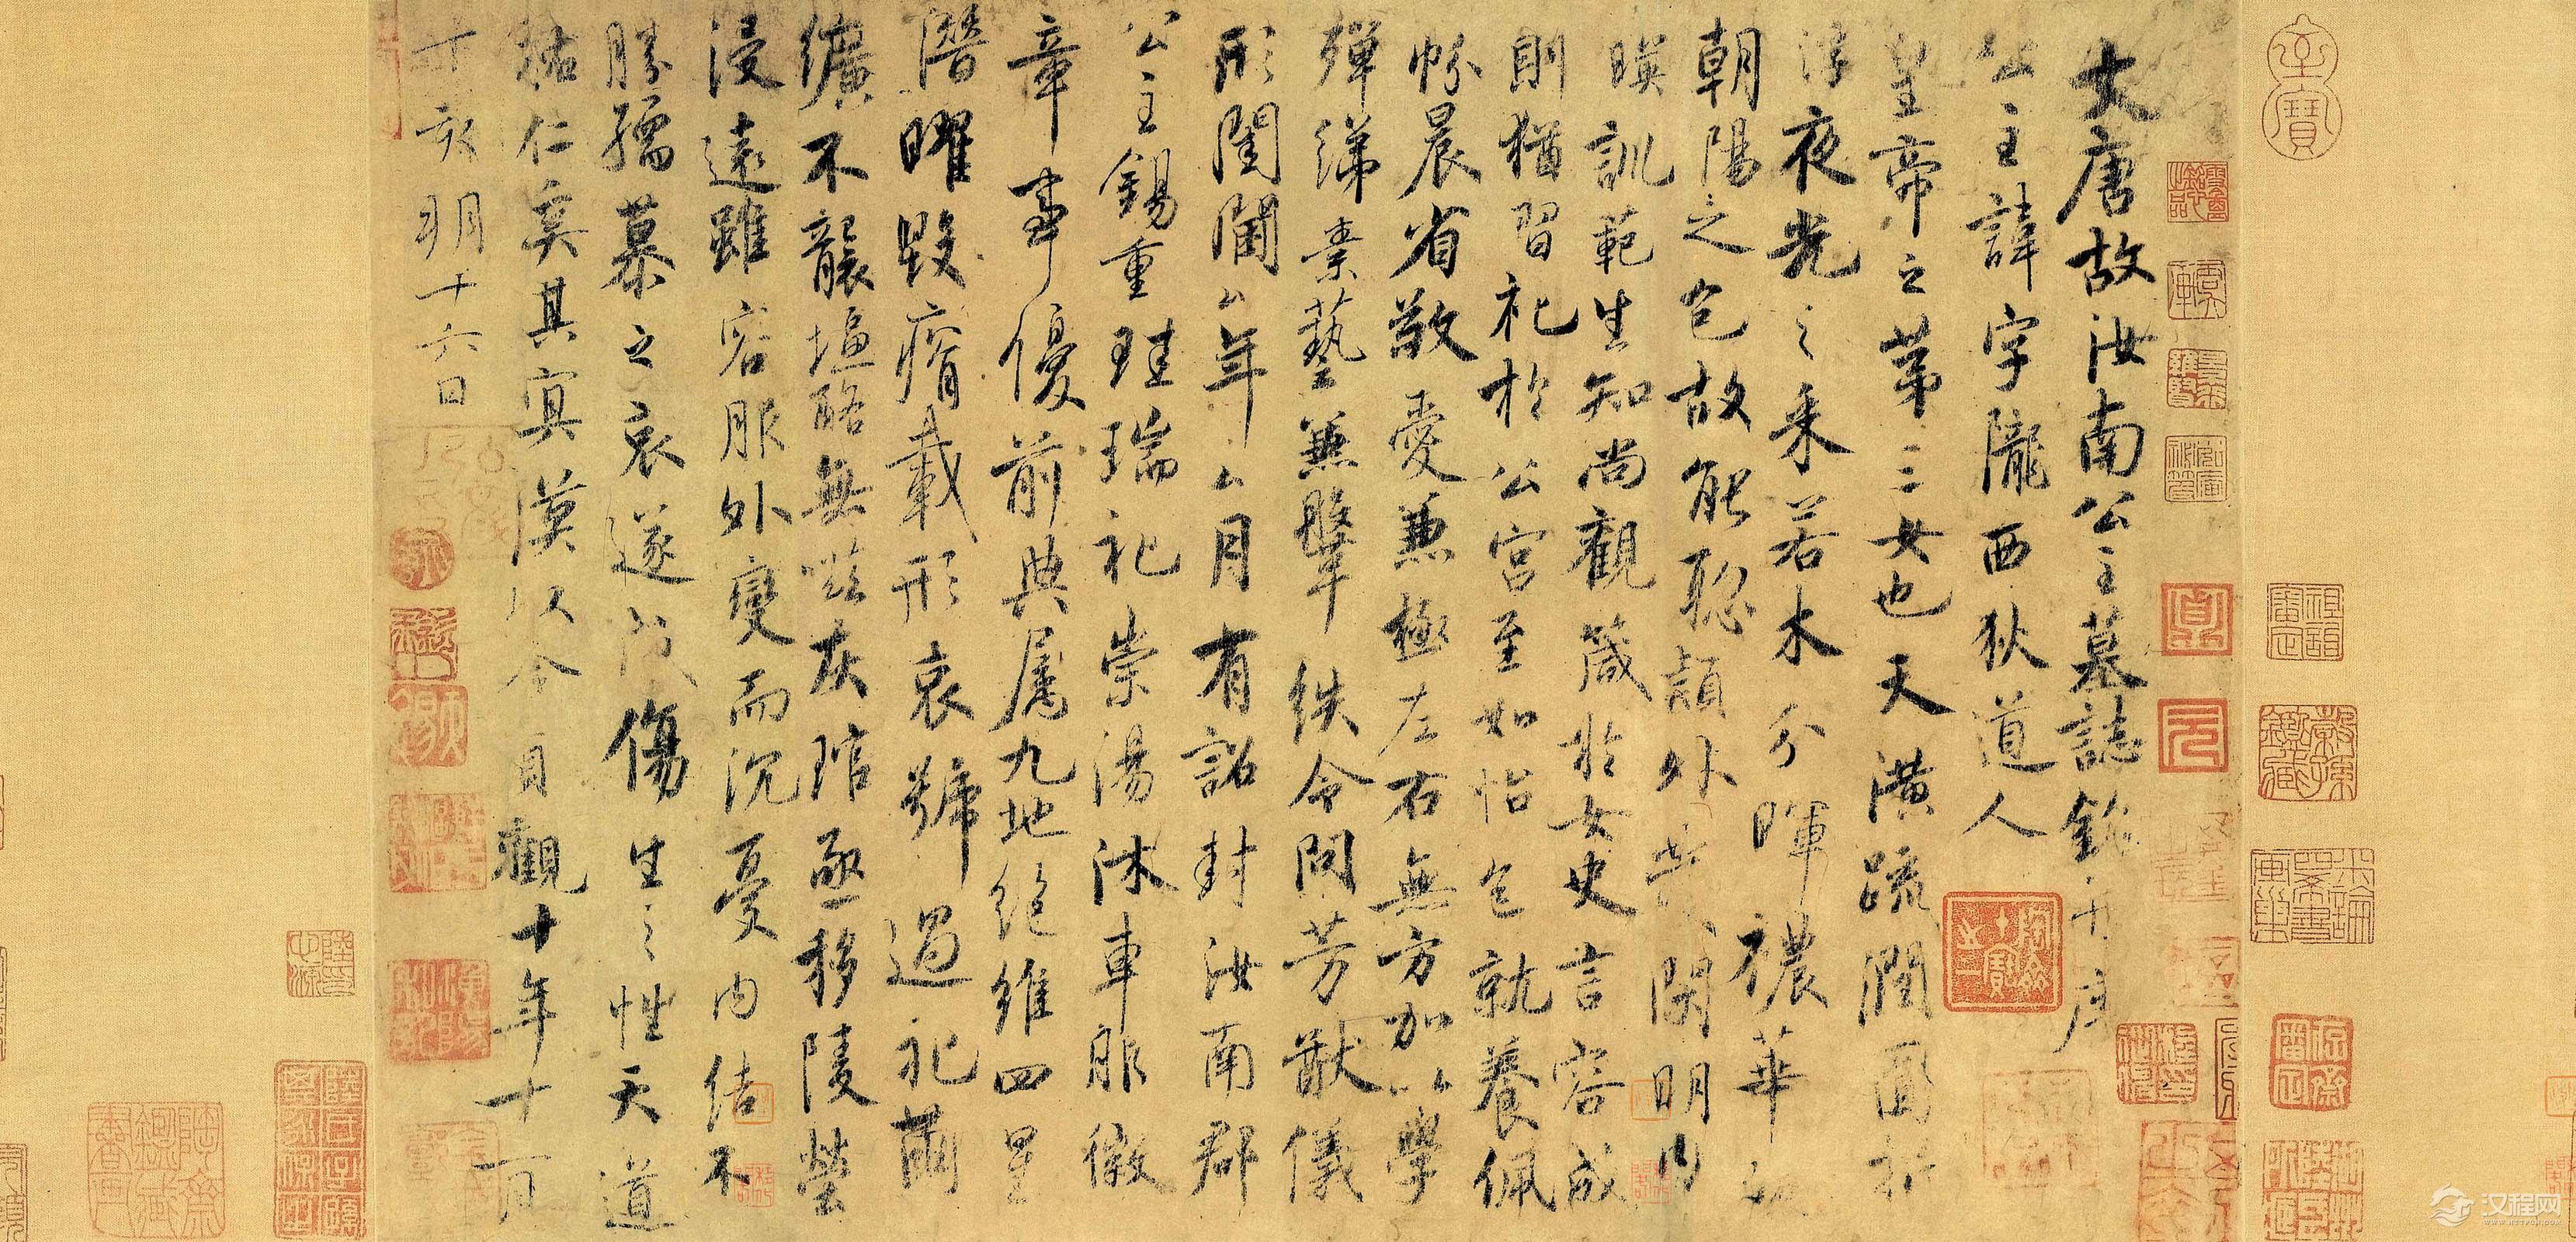 大唐故汝南公主墓誌銘并序
公主諱字隴西狄道人
皇帝之第三女也天潢疏潤圓折
浮夜光之采若木分暉襛華照
朝陽之色故能聡穎外發閑明内
暎訓範生知尚觀箴於女史言容成
則猶習礼於公宮至如怡色就養佩
帉晨省敬愛兼極左右無方加以學
殫綈素藝兼鞶紩令問芳猷儀
形閨閫厶年厶月有詔封汝南郡
公主錫重珪瑞礼崇湯沐車服徽
章事優前典屬九地絕維四星
潛曜毀瘠載形哀號過礼繭
纊不襲塩酪無嗞灰琯亟移陵塋
浸遠雖容服外變而沉憂内結不
勝孺慕之哀遂成傷生之性天道
祐仁奚其冥漠以今貞觀十年十一月
丁亥朔十六日
汉程网
WWW.HTTPCN.COM